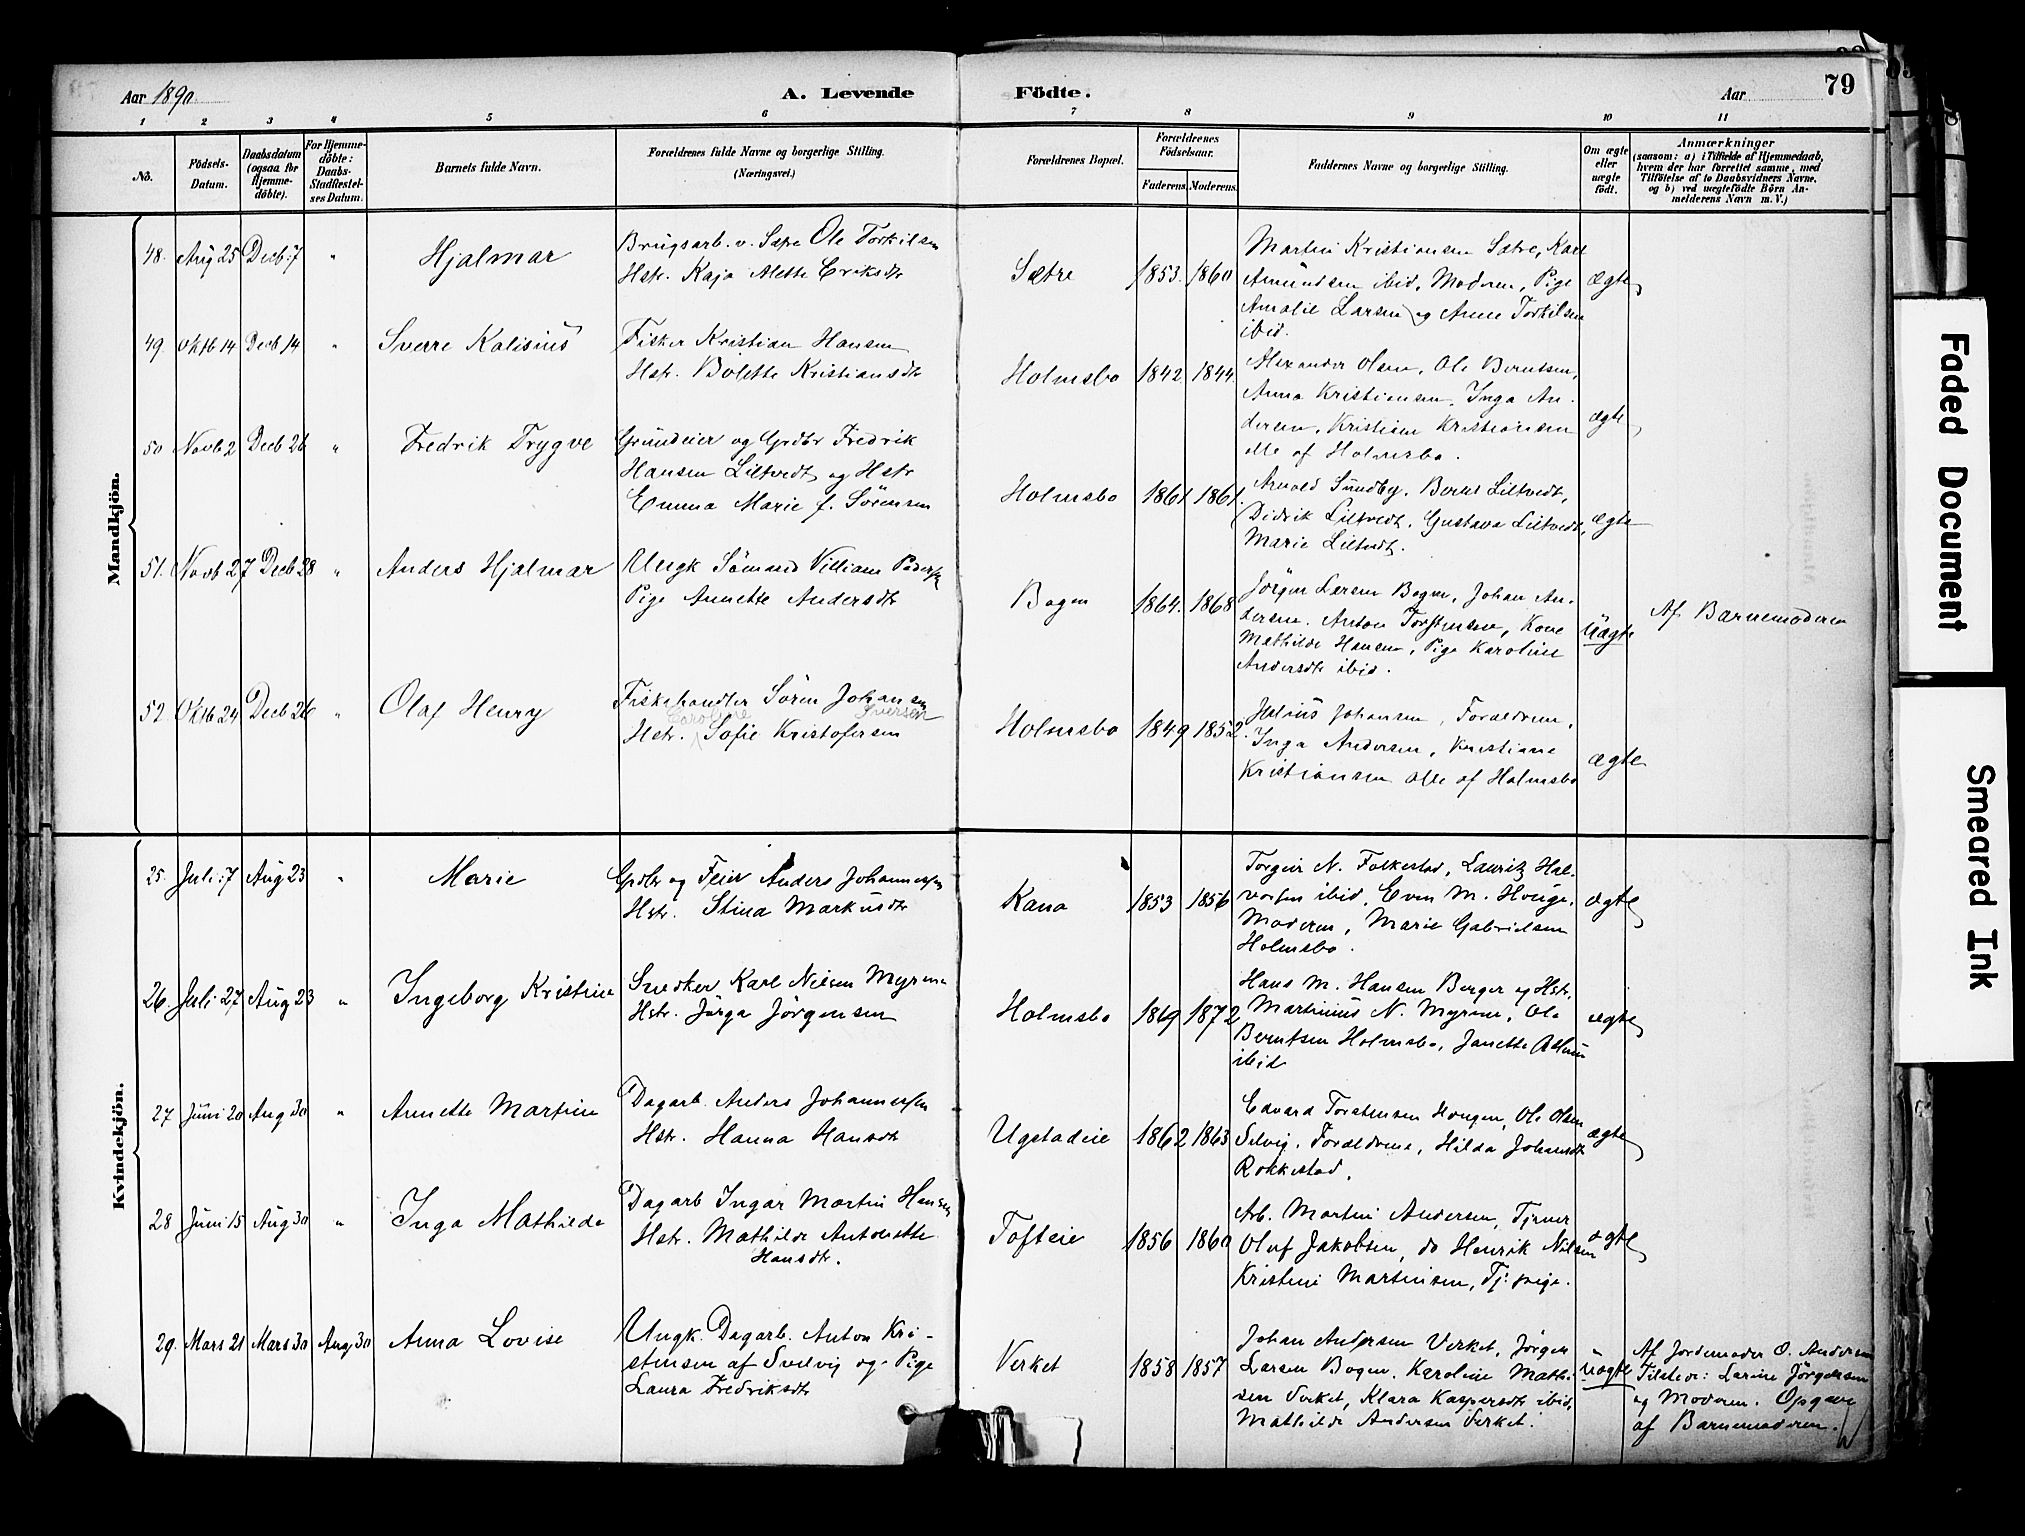 Aar 1890
A. Levende
Födte.
Aar
79
1 2 3 4 5 6 7 8 9 10 11
No.
Födsels-
Datum.
Daabsdatum
(ogsaa for
Hjemme-
döbte).
For Hjemme-
döbte:
Daabs-
Stadfæstel-
ses Datum.
Barnets fulde Navn.
Forældrenes fulde Navne og borgerlige Stilling.
(Næringsvei.)
Forældrenes Bopæl.
Forældrenes
Födselsaar.
Faderens.
Moderens.
Faddernes Navne og borgerlige Stilling.
Om ægte
eller
uægte
födt.
Anmærkninger
(saasom: a) i Tilfælde af Hjemmedaab,
hvem der har forrettet samme, med
Tilföielse af to Daabsvidners Navne,
og b) ved uægtefödte Börn An-
melderens Navn m. V.)
Mandkjön.
48. Aug 25 Decb 7 " Hjalmar
Brugsarb. v. Sætre Ole Torkilsen
Hstr. Kaja Alette Eriksdtr
Sætre 1853. 1860
Martin Kristiansen Sætre, Karl
Amundsen ibid, Moderen, Pige
Amalie Larsen og Anne Torkilsen
ibid.
ægte
49. Oktb 14 Decb 14 " Sverre Kalisius
Fisker Kristian Hansen
Hstr. Bolette Kristiansdtr
Holmsbo 1842 1844.
Alexander Olsen, Ole Berntsen,
Anna Kristiansen, Inga An-
dersen, Kristian Kristiansen
alle af Holmsbo.
ægte
50 Novb 2 Decb 26 " Fredrik Trygve
Grundeier og Grdbr Fredrik
Hansen Liltvedt og Hstr
Emma Marie f. Sörensen
Holmsbo 1861 1861.
Arnold Sundby, Bernt Liltvedt,
Didrik Liltvedt, Gustava Liltvedt,
Marie Liltvedt.
ægte
51. Novb 27 Decb 28 " Anders Hjalmar
Ungk Sömand Villiam Pedersen
Pige Annette Andersdtr
Bogen 1864. 1868
Jörgen Larsen Bogen, Johan An-
dersen, Anton Torstensen, Kone
Mathilde Hansen, Pige Karoline
Andersdtr ibid.
Uægte
Af Barnemoderen
52. Oktb 24 Decb 26 " Olaf Henry
Fiskehandler Sören Johansen
Caroline Iversen
Hstr. Sofie Kristofersen
Holmsbo 1849 1852.
Julius Johansen, Forældrene,
Inga Andersen, Kristiane
Kristiansen alle af Holmsbo
ægte
Kvindekjön.
25. Juli 7 Aug 23 " Marie
Grdbr og Feier Anders Johannesen
Hstr. Stina Markusdtr
Kana 1853 1856
Torgeir N. Folkestad, Lauritz Hal-
vorsen ibid, Even M. Houge,
Moderen, Marie Gabrielsen
Holmsbo.
ægte
26. Juli 27 Aug 23 " Ingeborg Kristine
Snedker Karl Nilsen Myrene
Hstr. Jörga Jörgensen
Holmsbo 1869 1872
Hans M. Hansen Berger og Hstr,
Martinius N. Myrene, Ole
Berntsen Holmsbo, Janette
ibid
ægte
27 Juni 20 Aug 30 " Annette Martine
Dagarb. Anders Johannesen
Hstr. Hanna Hansdtr
Ugstadeie 1862 1863
Edvard Torstensen Hougen, Ole Olsen
Selvig, Forældrene, Hilda Johansdtr
Rokkestad.
ægte
28 Juni 15 Aug 30 " Inga Mathilde
Dagarb Ingar Martin Hansen
Hstr. Mathilde Antonette
Hansdtr.
Tofteeie 1856 1860
Arb. Martin Andersen, Tjener
Oluf Jakobsen, do Henrik Nilsen
Kristine Martinsen, Tj: pige.
ægte
29. Mars 21 Mars 30 Aug 30 Anna Lovise
Ungk. Dagarb. Anton Kri-
stensen af Svelvig og Pige
Laura Fredriksdtr
Verket 1858 1857
Johan Andersen Verket, Jörgen
Larsen Bogen, Karoline Mathi-
sen Verket, Klara Kaspersdtr ibid,
Mathilde Andersen Verket.
Uægte
Af Jordemoder O. Andersen
Tilstede: Larine Jörgensen
og Moderen. Opgave
af Barnemoderen.
Faded Document
Smeared Ink